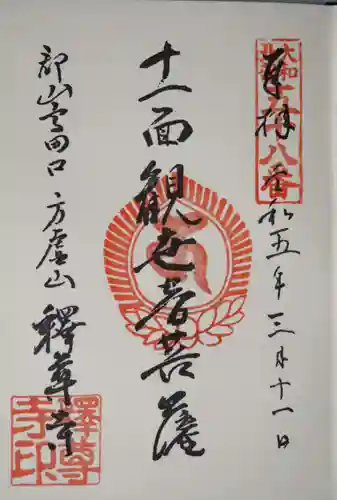 奉拝 令和五年三月十一日
大和北部
十八番
十一面観世音菩薩
郡山高田口 方廣山 釋尊寺
釋尊寺印